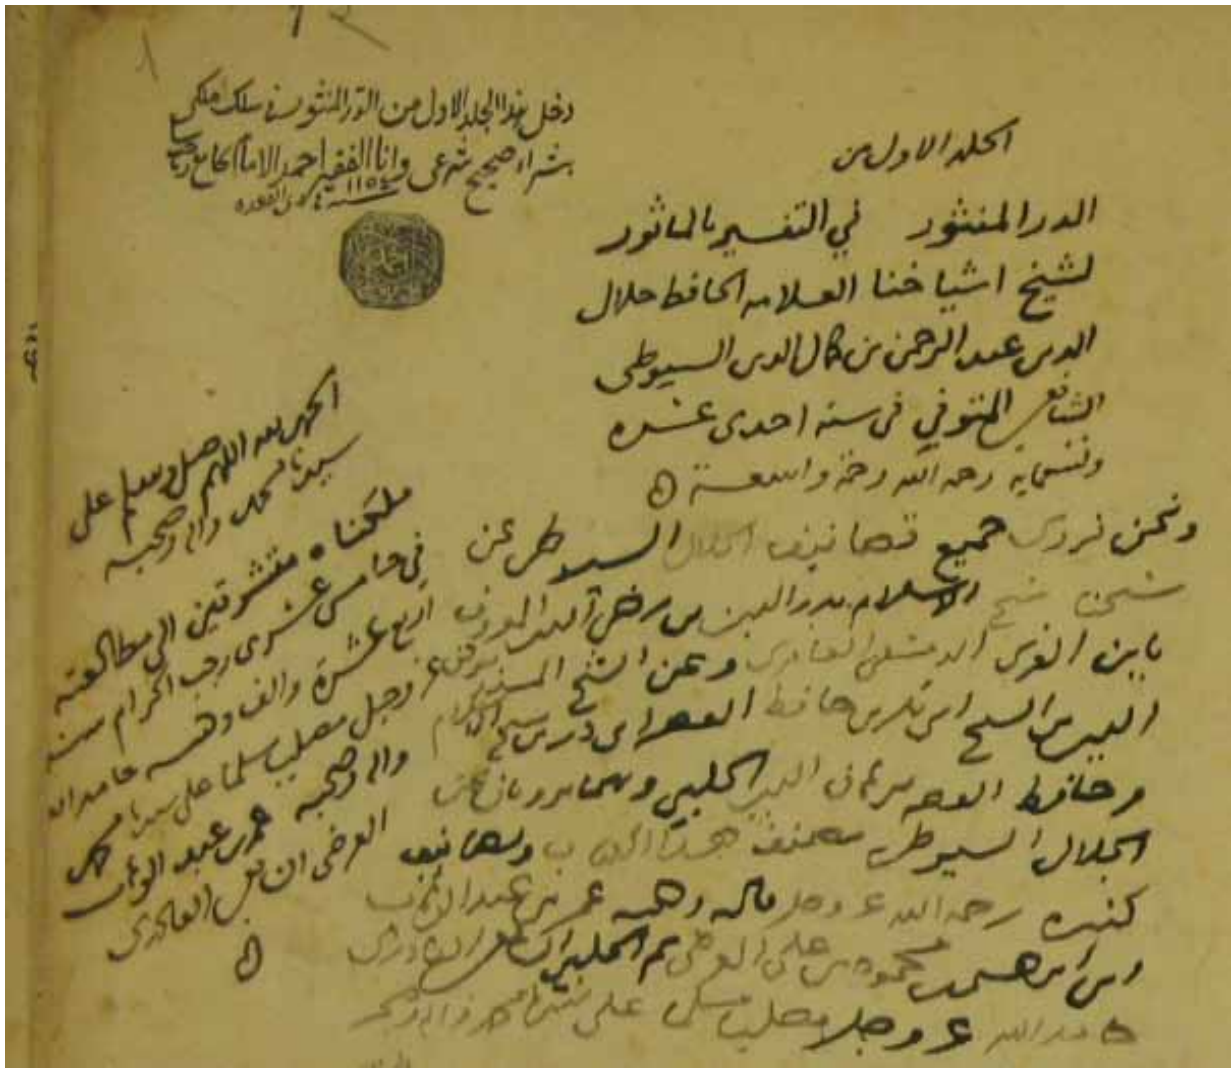 دخل هذا الجلد الاول من الدر المنثور في سلك ملكي
بشراء صحيح شرعي وانا الفقير احمد الامام
سنة ١١٥٤
الجلد الاول من
الدر المنثور في التفسير بالماثور
لشيخ اشياخنا العلامه الحافظ جلال
الدين عبد الرحمن بن كمال الدين السيوطي
الشافعي المتوفي في سنه احدى عشره
وتسعمايه رحمه الله رحمة واسعة
ونحن نروي جميع تصانيف الجلال السيوطي عن
شيخنا شيخ الاسلام بدر الدين بن رضي الدين المعروف
بابن الغزي الدمشقي العامري وعن الشيخ المسند
الدين بن الشيخ حافظ العصر ابي ذر
بن حافظ العصر برهان الدين الحلبي وهما يرويان عن
الجلال السيوطي مصنف هذا الكتاب وتصانيفه
كثيره رحمه الله عز وجل قاله وكتبه عمر بن عبد الوهاب
بن ابراهيم بن محمود بن علي العرضي ثم الحلبي الشافعي القادري
حامدا لله عز وجل مصليا مسلما على نبينا محمد واله وصحبه
الحمد لله اللهم صل وسلم على
سيدنا محمد واله وصحبه
ملكنا متشوقين الى مطالعته
في خامس عشري رجب الحرام سنة
اربع عشرة والف حامدا لله
عز وجل مصليا مسلما على سيدنا محمد
واله وصحبه عمر بن عبد الوهاب
العرضي الشافعي القادري